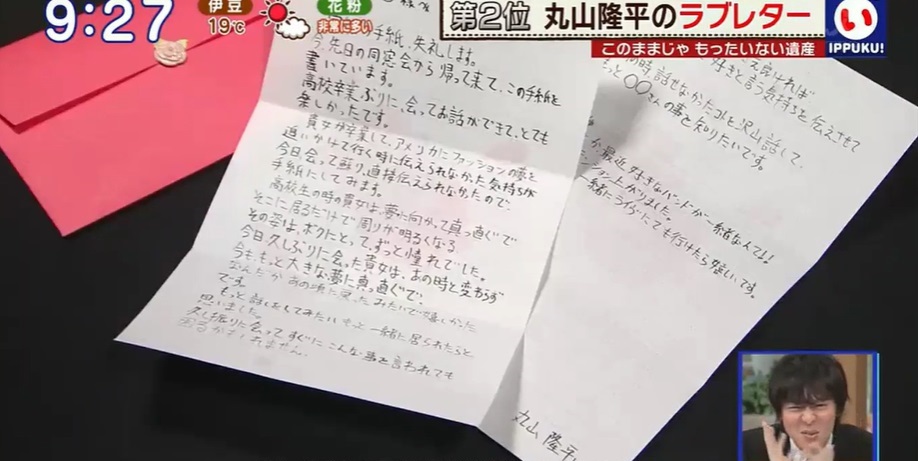 9:27
伊豆
19℃
花粉
非常に多い
第2位 丸山隆平のラブレター
このままじゃ もったいない遺産
い
IPPUKU!
手紙、失礼します。
今、先日の同窓会から帰って来て、この手紙を
書いています。
高校卒業ぶりに、会ってお話ができて、とても
楽しかったです。
貴女が卒業して、アメリカにファッションの夢を
追いかけて行く時に伝えられなかった気持ちが
今日会って蘇り、直接伝えられなかったので、
手紙にしてみます。
高校生の時の貴女は、夢に向かって真っ直ぐで
そこに居るだけで周りが明るくなる
その姿は、ボクにとって、ずっと憧れでした。
今日久しぶりに会った貴女は、あの時と変わらず
今ももっと大きな夢に真っ直ぐで、
なんだかあの頃に戻ったみたいで嬉しかった
です。
もっと話をしてみたい もっと一緒に居られたらと
思いました。
久し振りに会って すぐにこんな事を言われても
困るかもしれません。
良ければ
好きと言う気持ちを伝えさせて
話せなかったコトを沢山話して、
もっと〇〇さんの事を知りたいです。
最近好きなバンドが一緒なんて!
上がりました。
一緒にライブにでも行けたら嬉しいです。
丸山 隆平